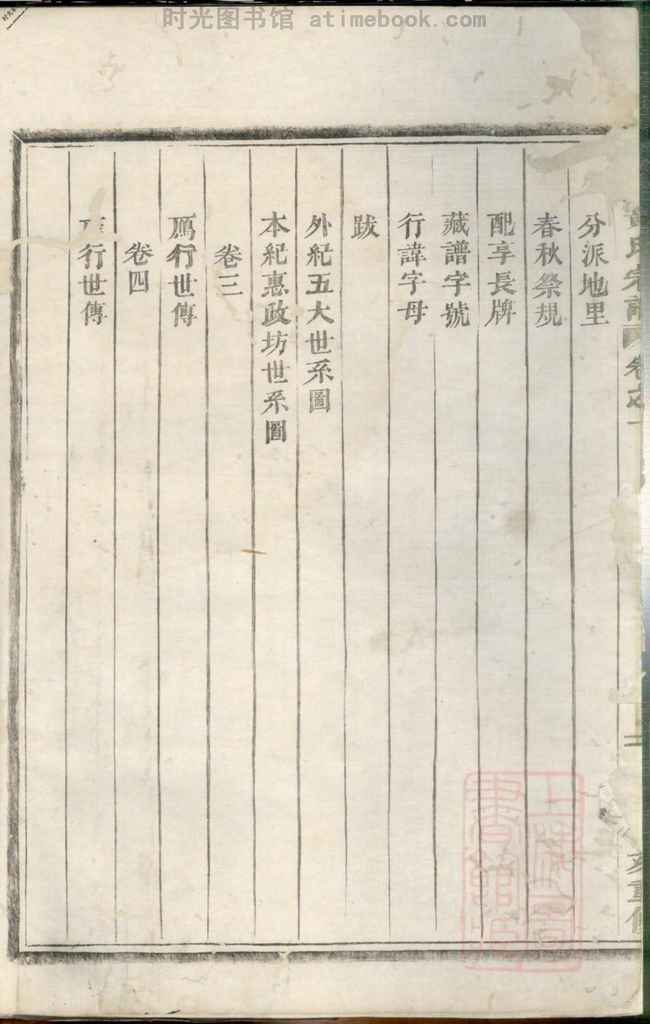 时光图书馆 atimebook.com
分派地里
春秋祭規
配享長牌
藏譜字號
行諱字母
跋
外紀五大世系圖
本紀惠政坊世系圖
卷三
鴈行世傳
卷四
行世傳
氏宗譜 卷之
重修